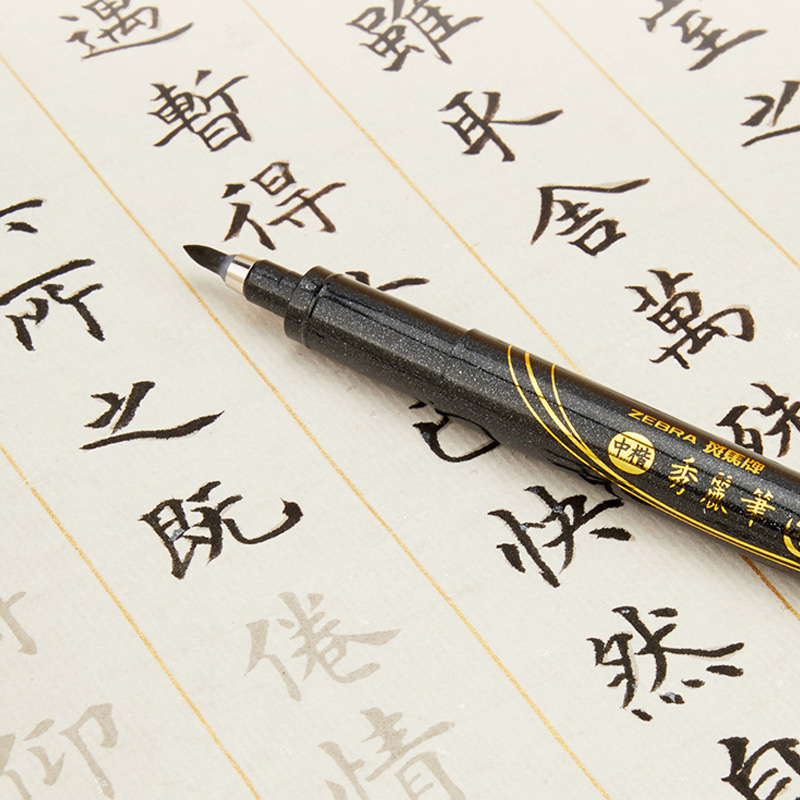 室之
雖取舍萬殊
遇暫得己快然自
所之既倦情
仰
ZEBRA 斑馬牌
中楷 秀麗筆